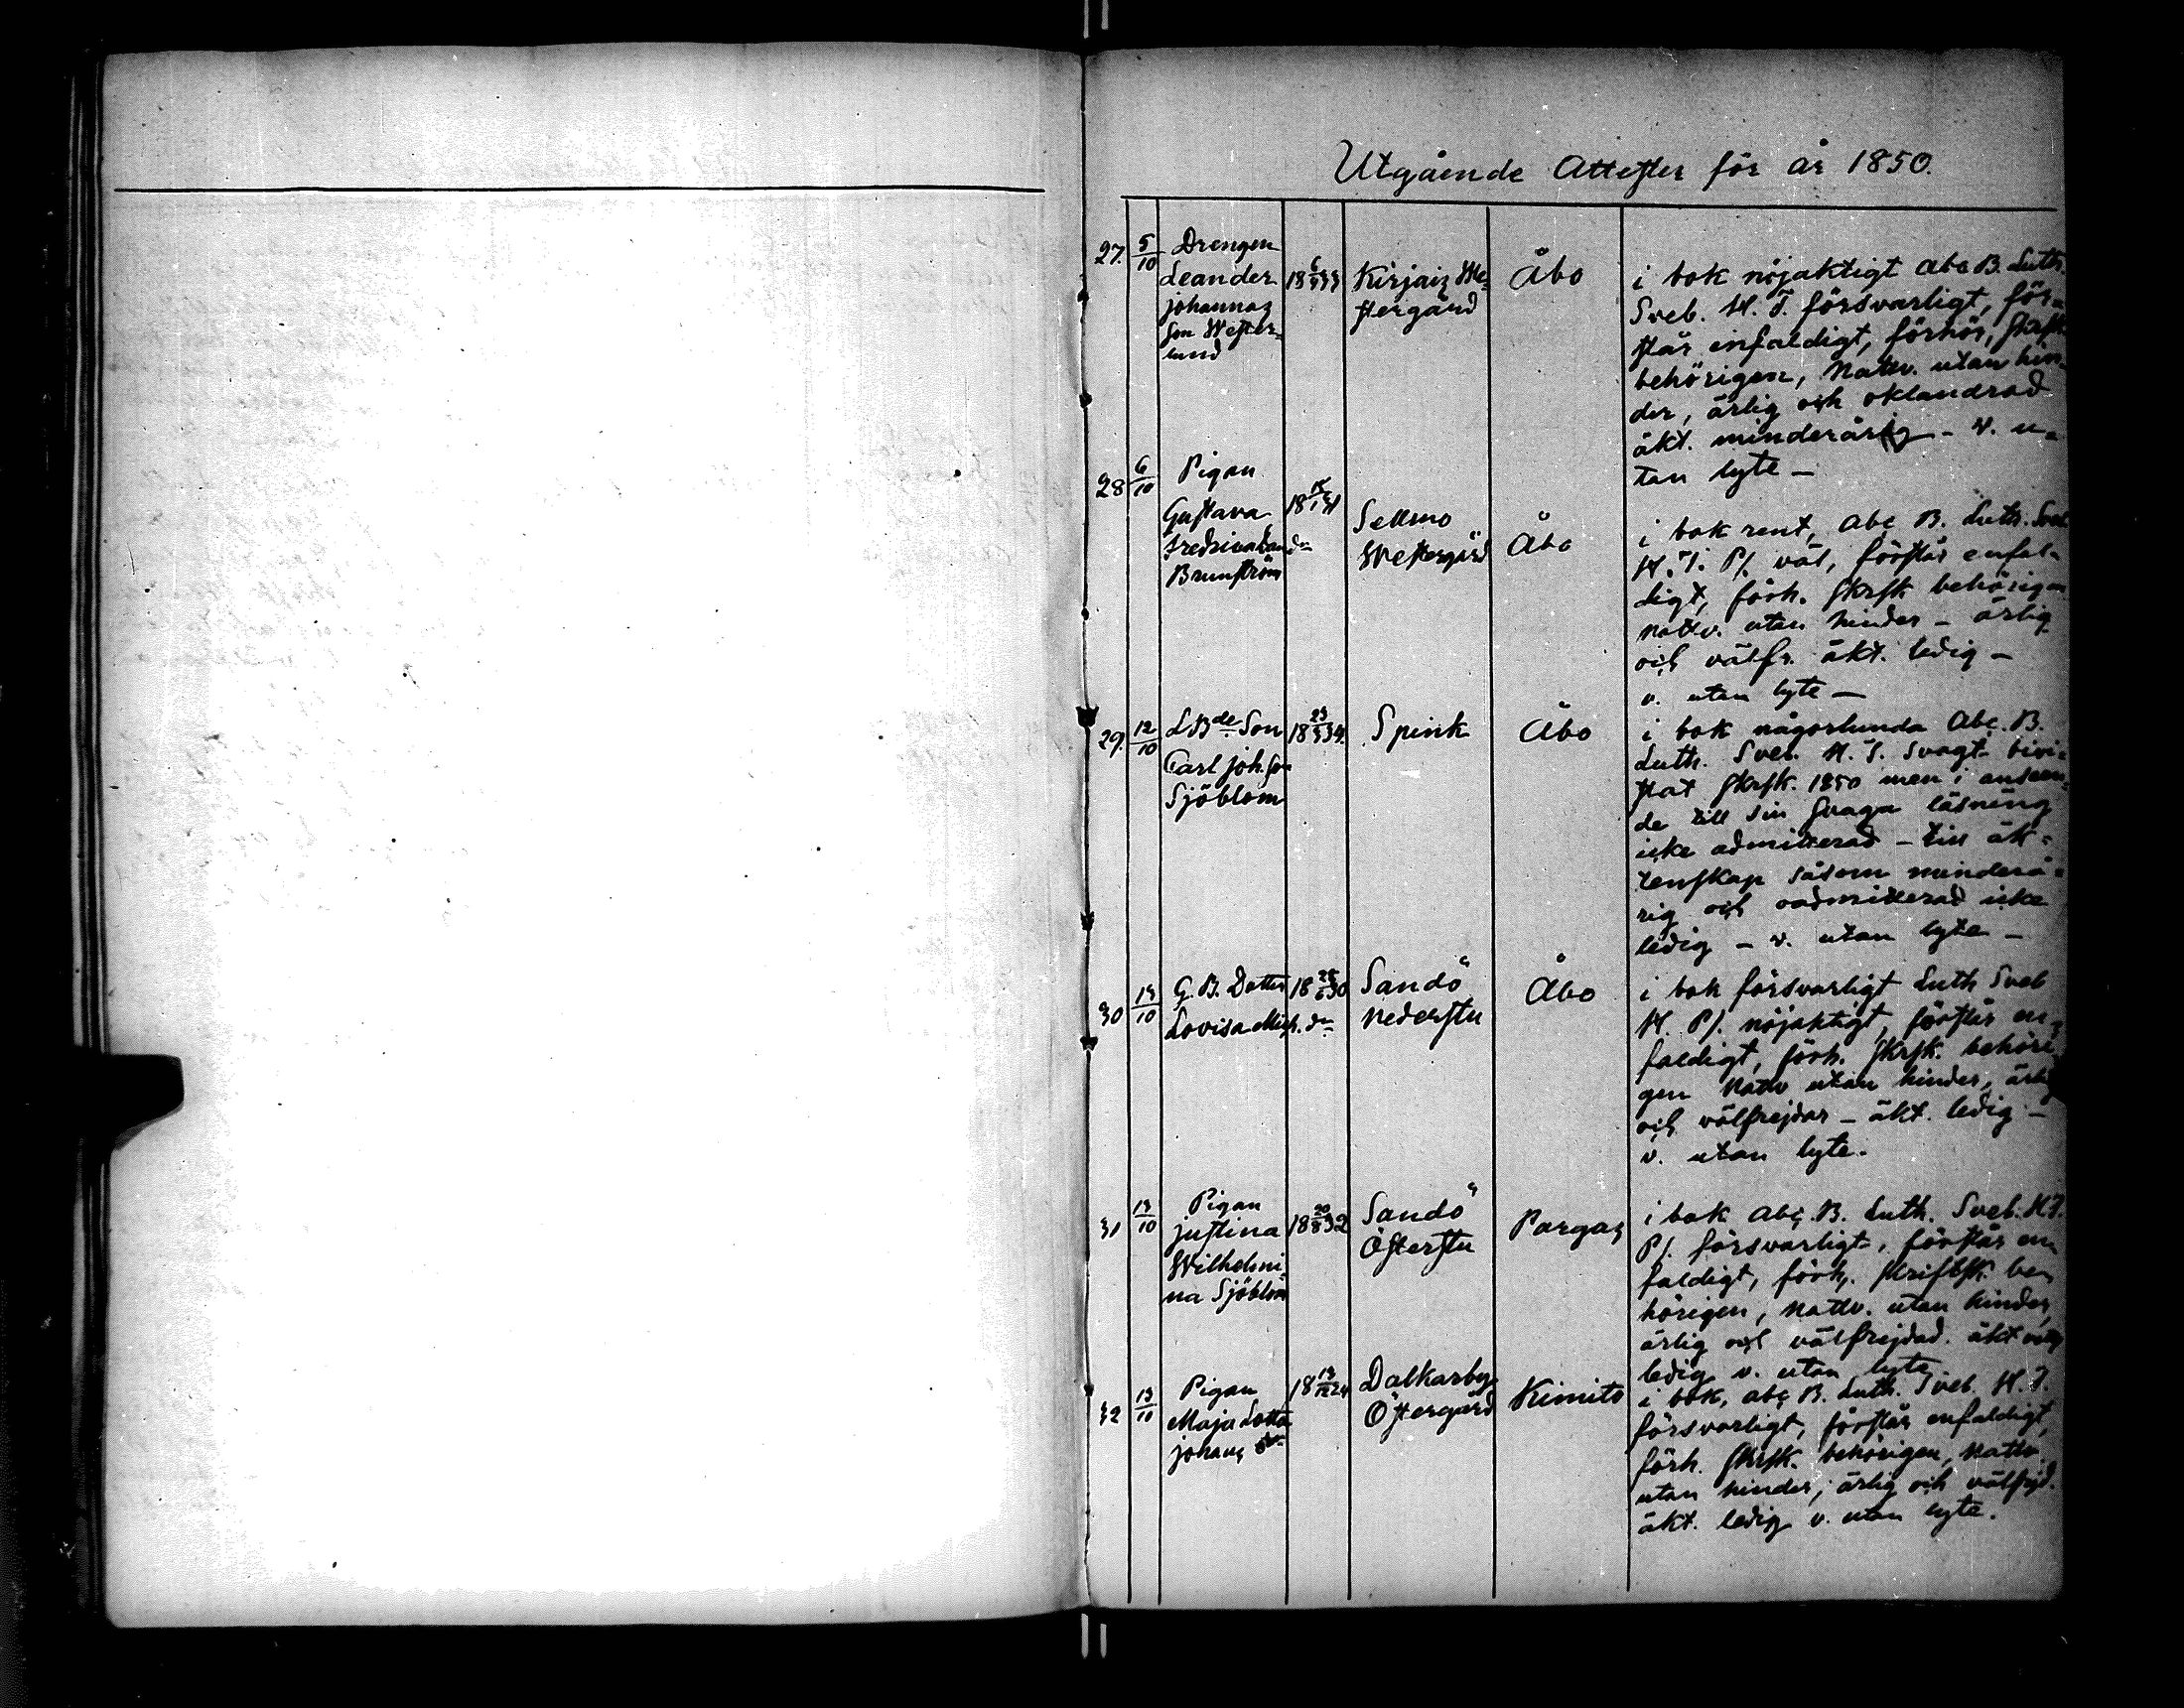 Utgående Attester för år 1850.
27. 5/10 Drengen
Leander
Johannas
Son Wester-
lund
Kirjais We-
stergård
Åbo
i bok nöjaktigt Abc B. Luth.
Sveb. H. T. försvarligt, för-
står enfaldigt, förhör, skrft.
behörigen, Nattv. utan hin-
der, ärlig och oklandrad
äkt. minderårig - v. u-
tan lyte -
28 6/10 Pigan
Gustava
Fredrica
Brunström
Sellmo
Westergård
Åbo
i bok rent, Abc B. Luth. Sveb.
H. T. Ps. väl, förstår enfal-
digt, förh. skrsk behörigen
nattv. utan hinder - ärlig
och välfr. äkt. ledig -
v. utan lyte -
29. 12/10 LBde Son
Carl Joh. Son
Sjöblom
Spink
Åbo
i bok någorlunda Abc. B.
Luth. Sveb. H. T. svagt bivi-
stat skrsk. 1850 men i anseen-
de till sin svaga läsning
icke admitterad - till äk-
tenskap såsom minderå-
rig och oadmitterad icke
ledig - v. utan lyte -
30 13/10 G. B. Dotter 18 30
Lovisa Mich. dr
Sandö
Nederstu
Åbo
i bok försvarligt Luth Sveb
H. Ps. nöjaktigt, förstår en-
faldigt, förh. skrsk. behöri-
gen Nattv utan hinder, ärlig
och välfrejdar - äkt. ledig -
v. utan lyte.
31 13/10 Pigan
Justina
Wilhelmi-
na Sjöblom
18 20/8 32
Sandö
Österstu
Pargas
i bok Abc. B. Luth. Sveb. H T.
Ps. försvarligt, förstår en-
faldigt, förh. skriftsk. be-
hörigen, nattv. utan hinder,
ärlig och välfrejdad. äkt
ledig v. utan lyte
32 13/10 Pigan
Maja Lotta
Johans dr
18 13/12 24
Dalkarby
Östergård
Kimito
i bok, abc B. Luth. Sveb. H. T.
försvarligt, förstår enfaldigt,
förh. skrsk. behörigen, Nattv.
utan hinder, ärlig och välfrjd.
äkt. ledig v. utan lyte.